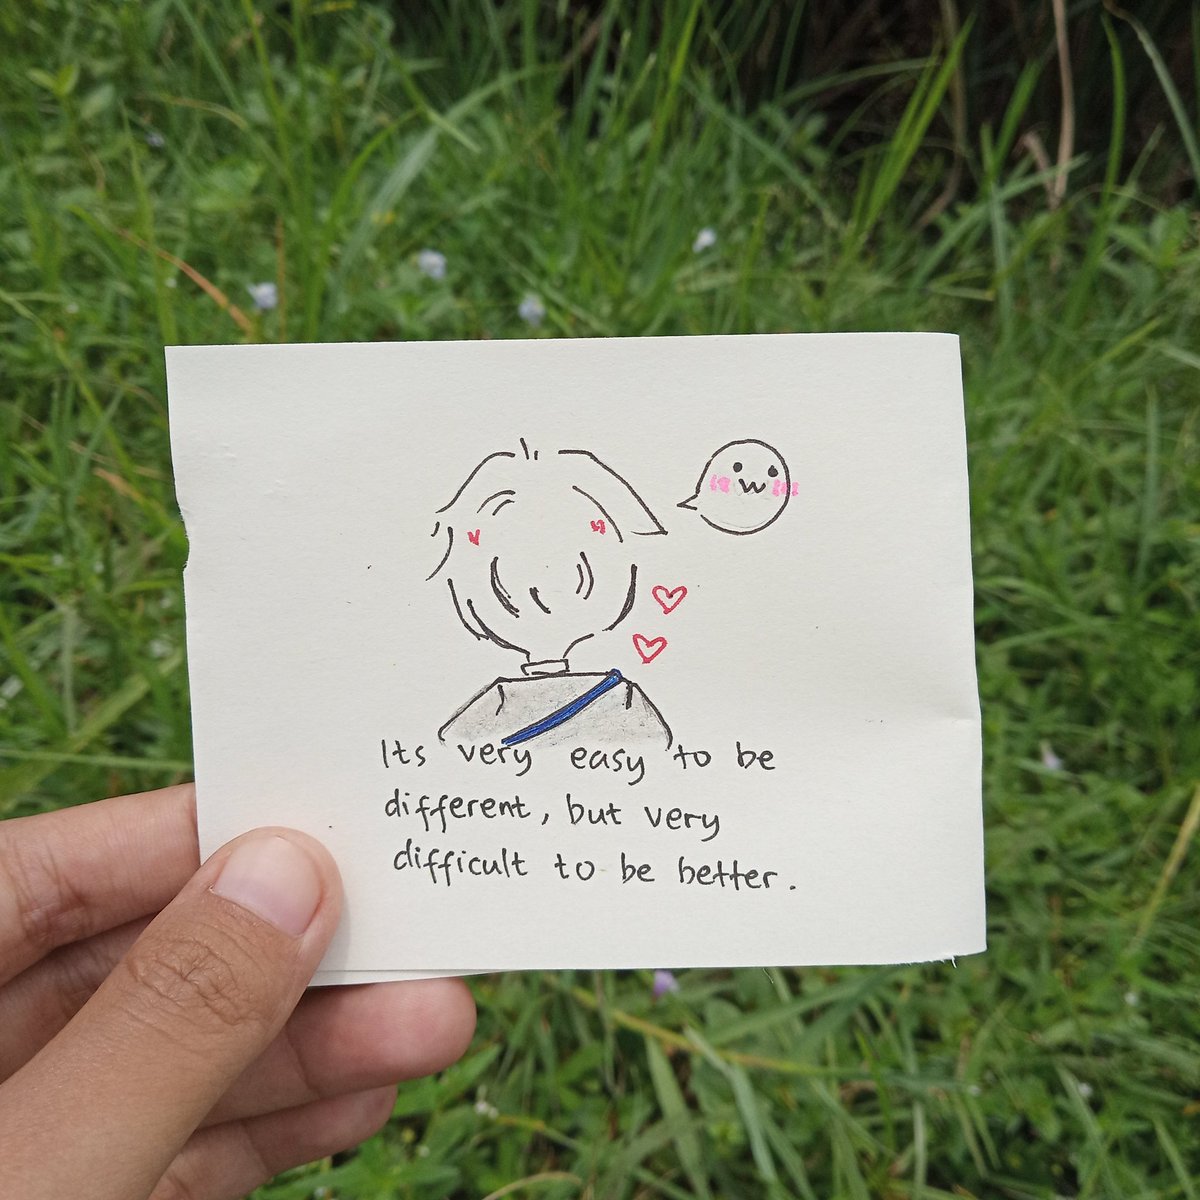 Its very easy to be
different, but very
difficult to be better.